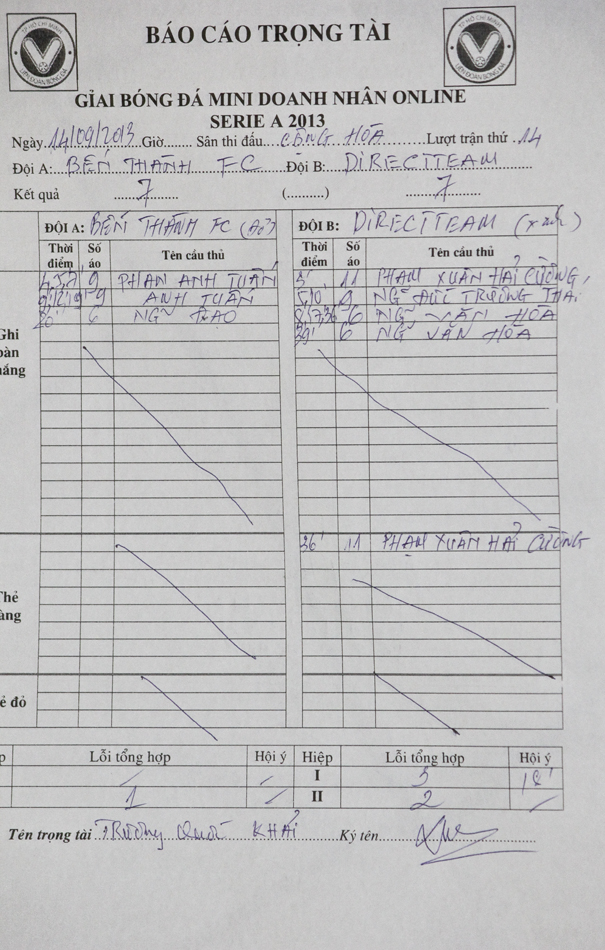 TP HỒ CHÍ MINH
LIÊN ĐOÀN BÓNG ĐÁ
BÁO CÁO TRỌNG TÀI
TP HỒ CHÍ MINH
LIÊN ĐOÀN BÓNG ĐÁ
GIẢI BÓNG ĐÁ MINI DOANH NHÂN ONLINE
SERIE A 2013
Ngày 14/09/2013 Giờ....... Sân thi đấu CỘNG HÒA Lượt trận thứ 14
Đội A: BẾN THÀNH FC Đội B: DIRECTTEAM
Kết quả 7 (..........) 7
ĐỘI A: BẾN THÀNH FC ĐỘI B: DIRECTTEAM (xanh)
Thời điểm Số áo Tên cầu thủ Thời điểm Số áo Tên cầu thủ
9 PHAN ANH TUẤN 3' 11 PHẠM XUÂN HẢI CƯỜNG
9 ANH TUẤN 9 NG ĐỨC TRƯỜNG THÁI
20' 6 NG 6 NG VĂN HÒA
39' 6 NG VĂN HÒA
Ghi
bàn
hắng
36' 11 PHẠM XUÂN HẢI CƯỜNG
Thẻ
àng
ẻ đỏ
p Lỗi tổng hợp Hội ý Hiệp Lỗi tổng hợp Hội ý
I 5 18'
1 II 2
Tên trọng tài Trương Quốc KHẢI Ký tên